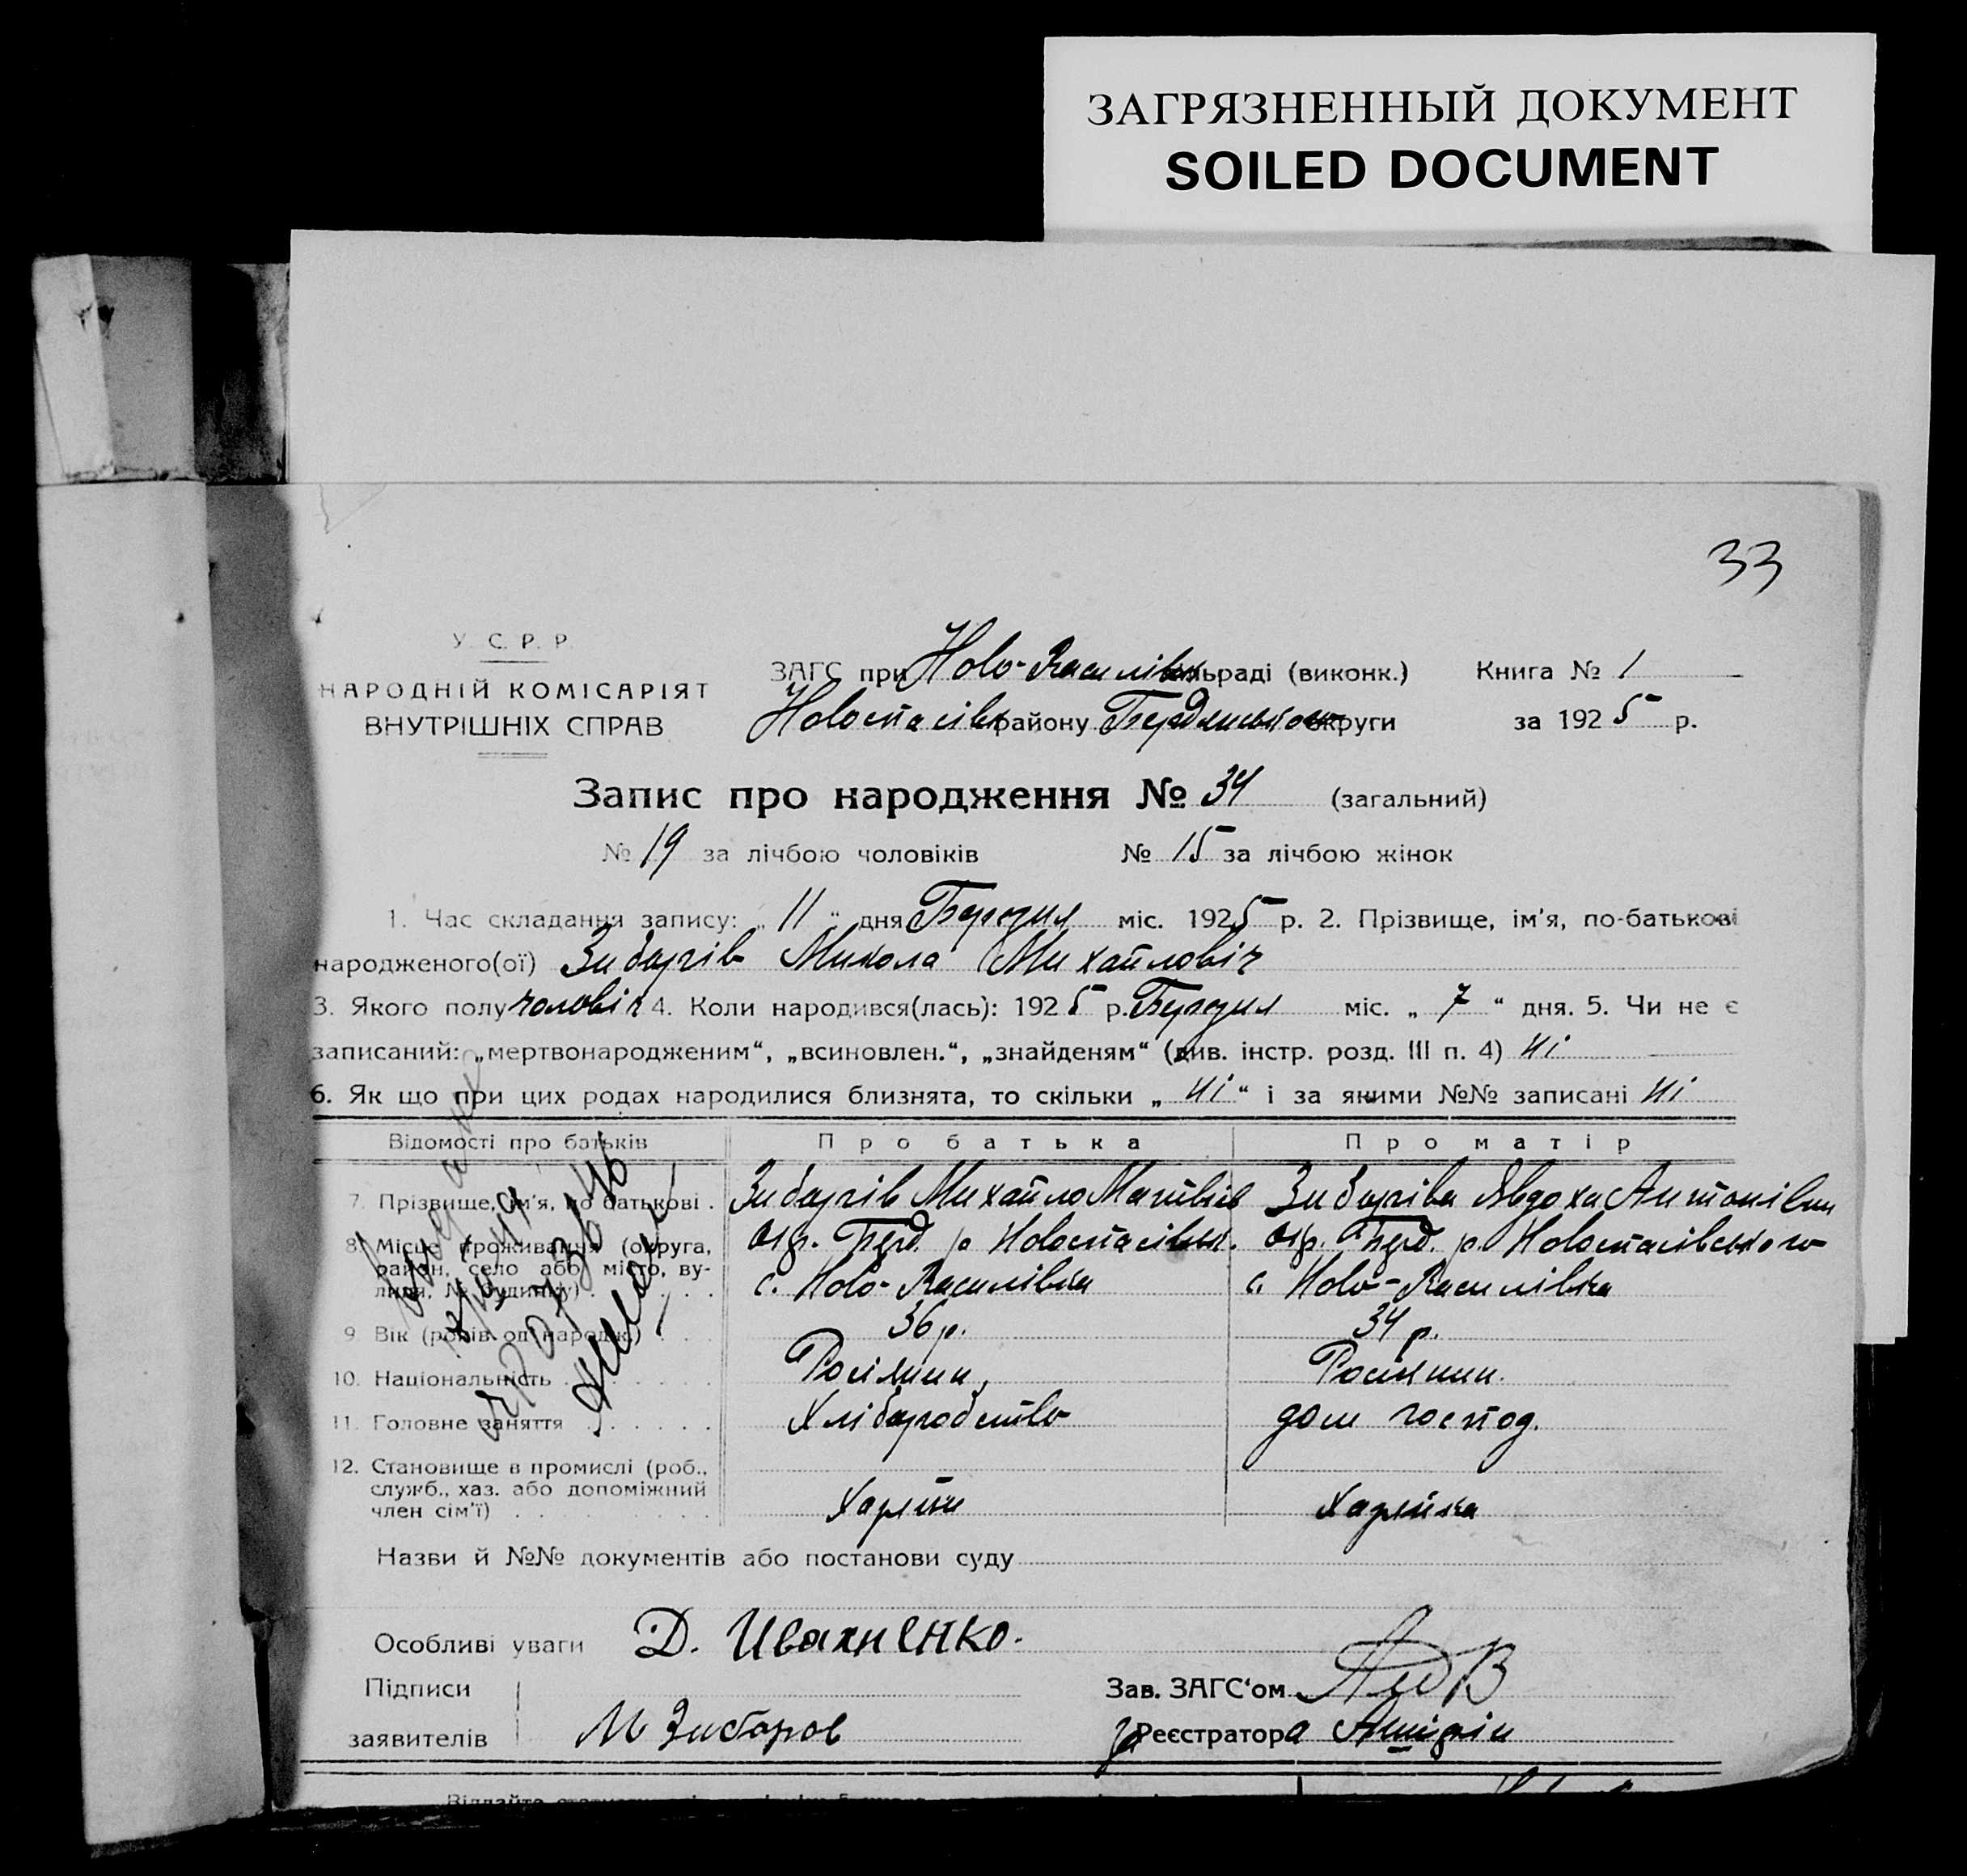 ЗАГРЯЗНЕННЫЙ ДОКУМЕНТ
SOILED DOCUMENT
33
У. С. Р. Р.
НАРОДНІЙ КОМІСАРІЯТ
ВНУТРІШНІХ СПРАВ
ЗАГС при Ново-Василівк сільраді (виконк.) Книга № 1
Новоспасівськ району Бердянською округи за 1925 р.
Запис про народження № 34 (загальний)
№ 19 за лічбою чоловіків № 15 за лічбою жінок
1. Час складання запису: „ 11 “ дня Березня міс. 1925 р. 2. Прізвище, ім'я, по-батькові
народженого(ої) Зибарів Микола Михайловіч
3. Якого полу чоловіч 4. Коли народився(лась): 1925 р. Березня міс. „ 7 “ дня. 5. Чи не є
записаний: „мертвонародженим“, „всиновлен.“, „знайденям“ (див. інстр. розд. III п. 4) ні
6. Як що при цих родах народилися близнята, то скільки „ ні “ і за якими №№ записані ні
Відомості про батьків Про батька Про матір
7. Прізвище, ім'я, по батькові . Зибарів Михайло Матвієв Зибаріва Явдоха Антонівна
8. Місце проживання (округа, район, село або місто, вулиця, № будинку) . Окр. Берд. р. Новоспасівськ. с. Ново-Василівка Окр. Берд. р. Новоспасівського с. Ново-Василівка
9. Вік (років од народж.) . . . 36 р. 34 р.
10. Національність . . . Росіянин Росіянин.
11. Головне заняття . . . Хліборобство дом господ.
12. Становище в промислі (роб., служб., хаз. або допоміжний член сім'ї) . . . Хазяїн Хазяйка
Назви й №№ документів або постанови суду
Особливі уваги Д. Ивахненко.
Підписи Зав. ЗАГС'ом
заявителів М Зибаров за Реєстратора